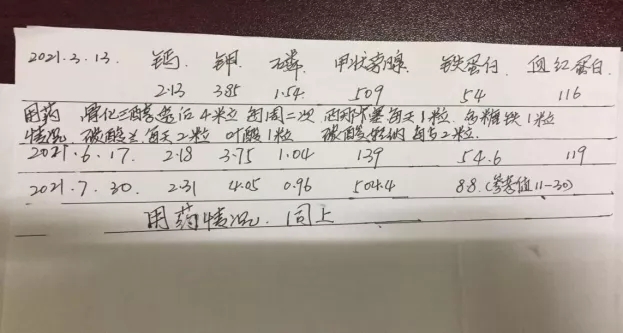 2021.3.13. 钙. 钾. 磷. 甲状旁腺. 铁蛋白. 血红蛋白.
2.13 3.85 1.54 509 54 116
用药 骨化三醇 4粒 每周二次. 西那卡塞每天1粒. 多糖铁1粒
情况. 碳酸 每天2粒 叶酸1粒 碳酸 每 2粒.
2021.6.17. 2.18 3.75 1.04 139 54.6 119
2021.7.30. 2.31 4.05 0.96 504.4 88.(参考值11-30)
用药情况. 同上